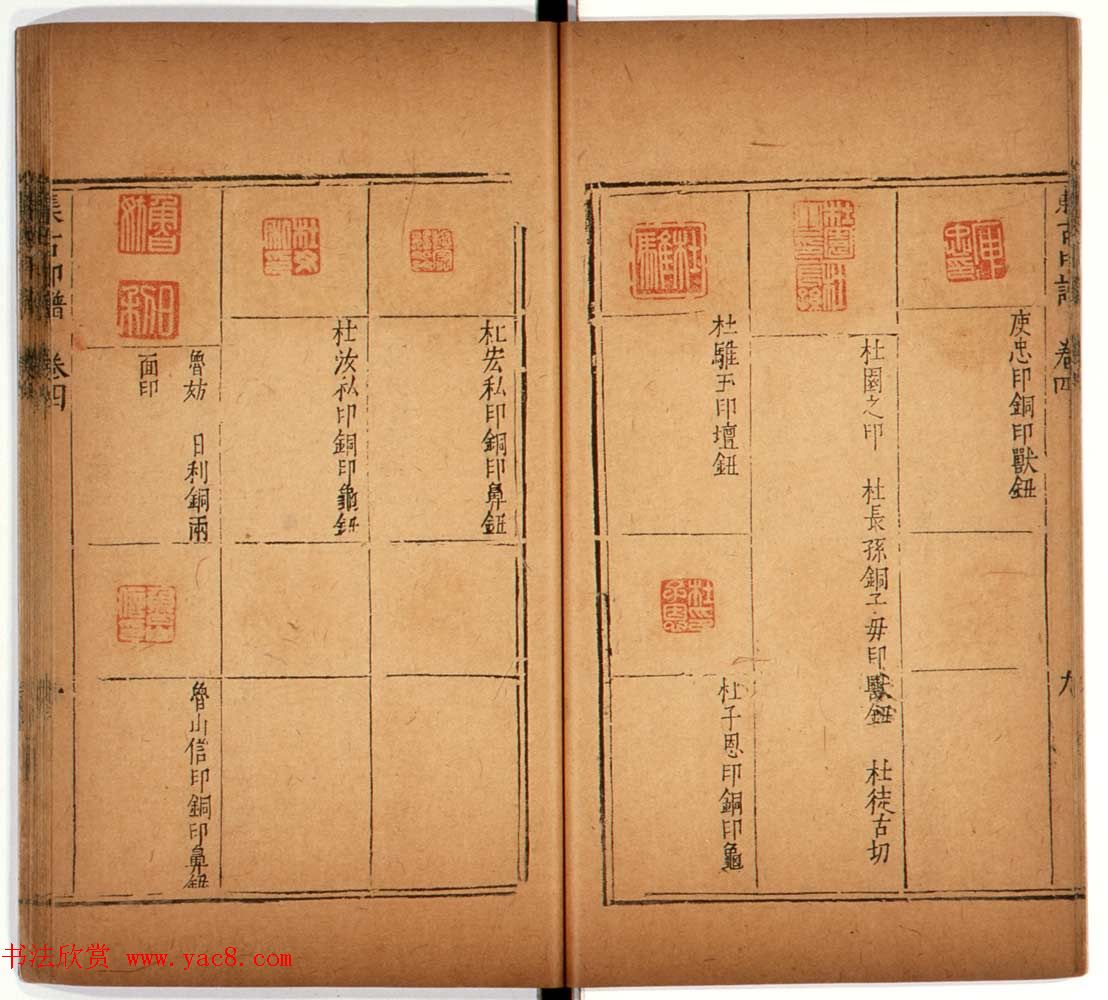 集古印譜 卷四
九
庾忠印銅印獸鈕
杜園之印 杜長孫銅子母印獸鈕 杜徒古切
杜騅玉印壇鈕
杜子恩印銅印龜
杜宏私印銅印鼻鈕
杜汝私印銅印龜鈕
魯妨 日利銅兩
面印
魯山信印銅印鼻鈕
集古印譜 卷四
书法欣赏 www.yac8.com